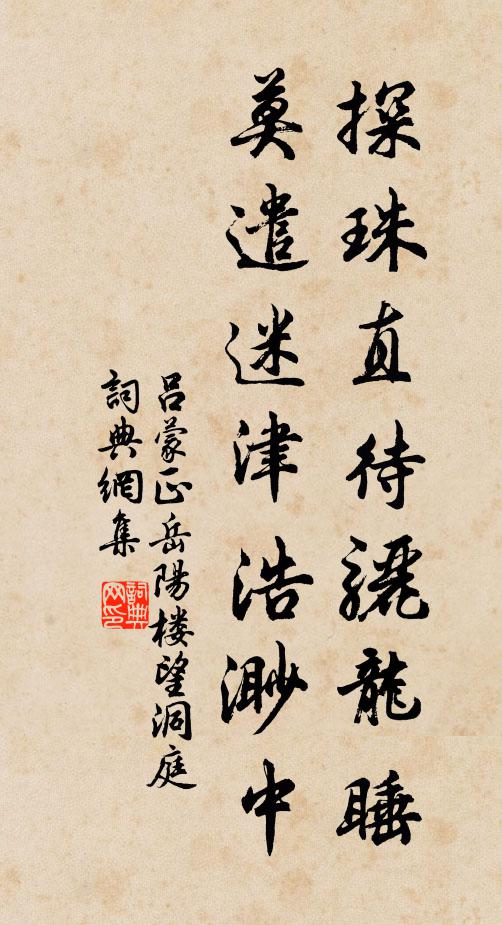 探珠直待驪龍睡
莫遣迷津浩渺中
呂蒙正岳陽楼望洞庭
詞典網集
詞典网印